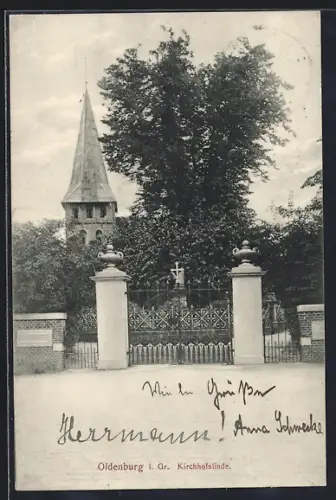 Viele Grüße
Herrmann! Anna
Oldenburg i. Gr. Kirchhofslinde.